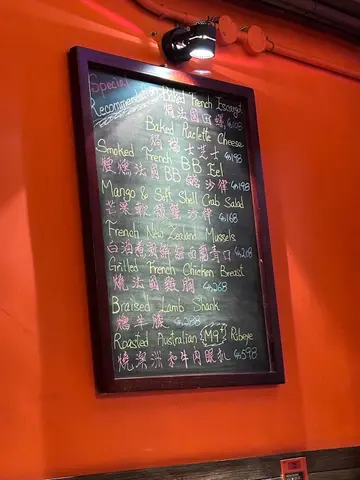 Special
Recommendation
Baked French Escargot
焗法國田螺 168
Baked Raclette Cheese
焗瑞士芝士 198
Smoked French BB Eel
煙燻法國BB鰻沙律 198
Mango & Soft Shell Crab Salad
芒果軟殼蟹沙律 168
French New Zealand Mussels
白酒煮新西蘭青口 268
Grilled French Chicken Breast
燒法國雞胸 268
Braised Lamb Shank
燴羊膝 288
Roasted Australian M9+ Ribeye
燒澳洲和牛肉眼扒 598